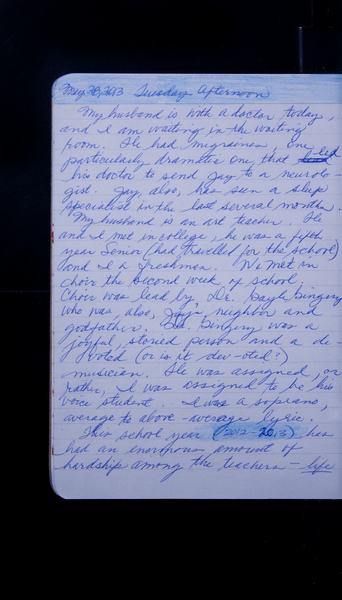 May 28, 2013 Tuesday Afternoon
My husband is with a doctor today,
and I am waiting in the waiting
room. He had migraines, one
particularly dramatic one, that led
his doctor to send Jay to a neurolo-
gist. Jay, also, has seen a sleep
specialist in the last several months.
My husband is an art teacher. He
and I met in college, he was a fifth
year Senior (had travelled for the school)
and I a freshman. We met in
choir the second week of school.
Choir was lead by Dr. Gayle Gingery
who was, also, Jay's neighbor and
godfather. Dr. Gingery was a
joyful, storied person and a de-
voted (or is it dev-oted?)
musician. He was assigned, or
rather, I was assigned to be his
voice student. I was a soprano,
average to above-average lyric.
This school year (2012-2013) has
had an enormous amount of
hardship among the teachers - life